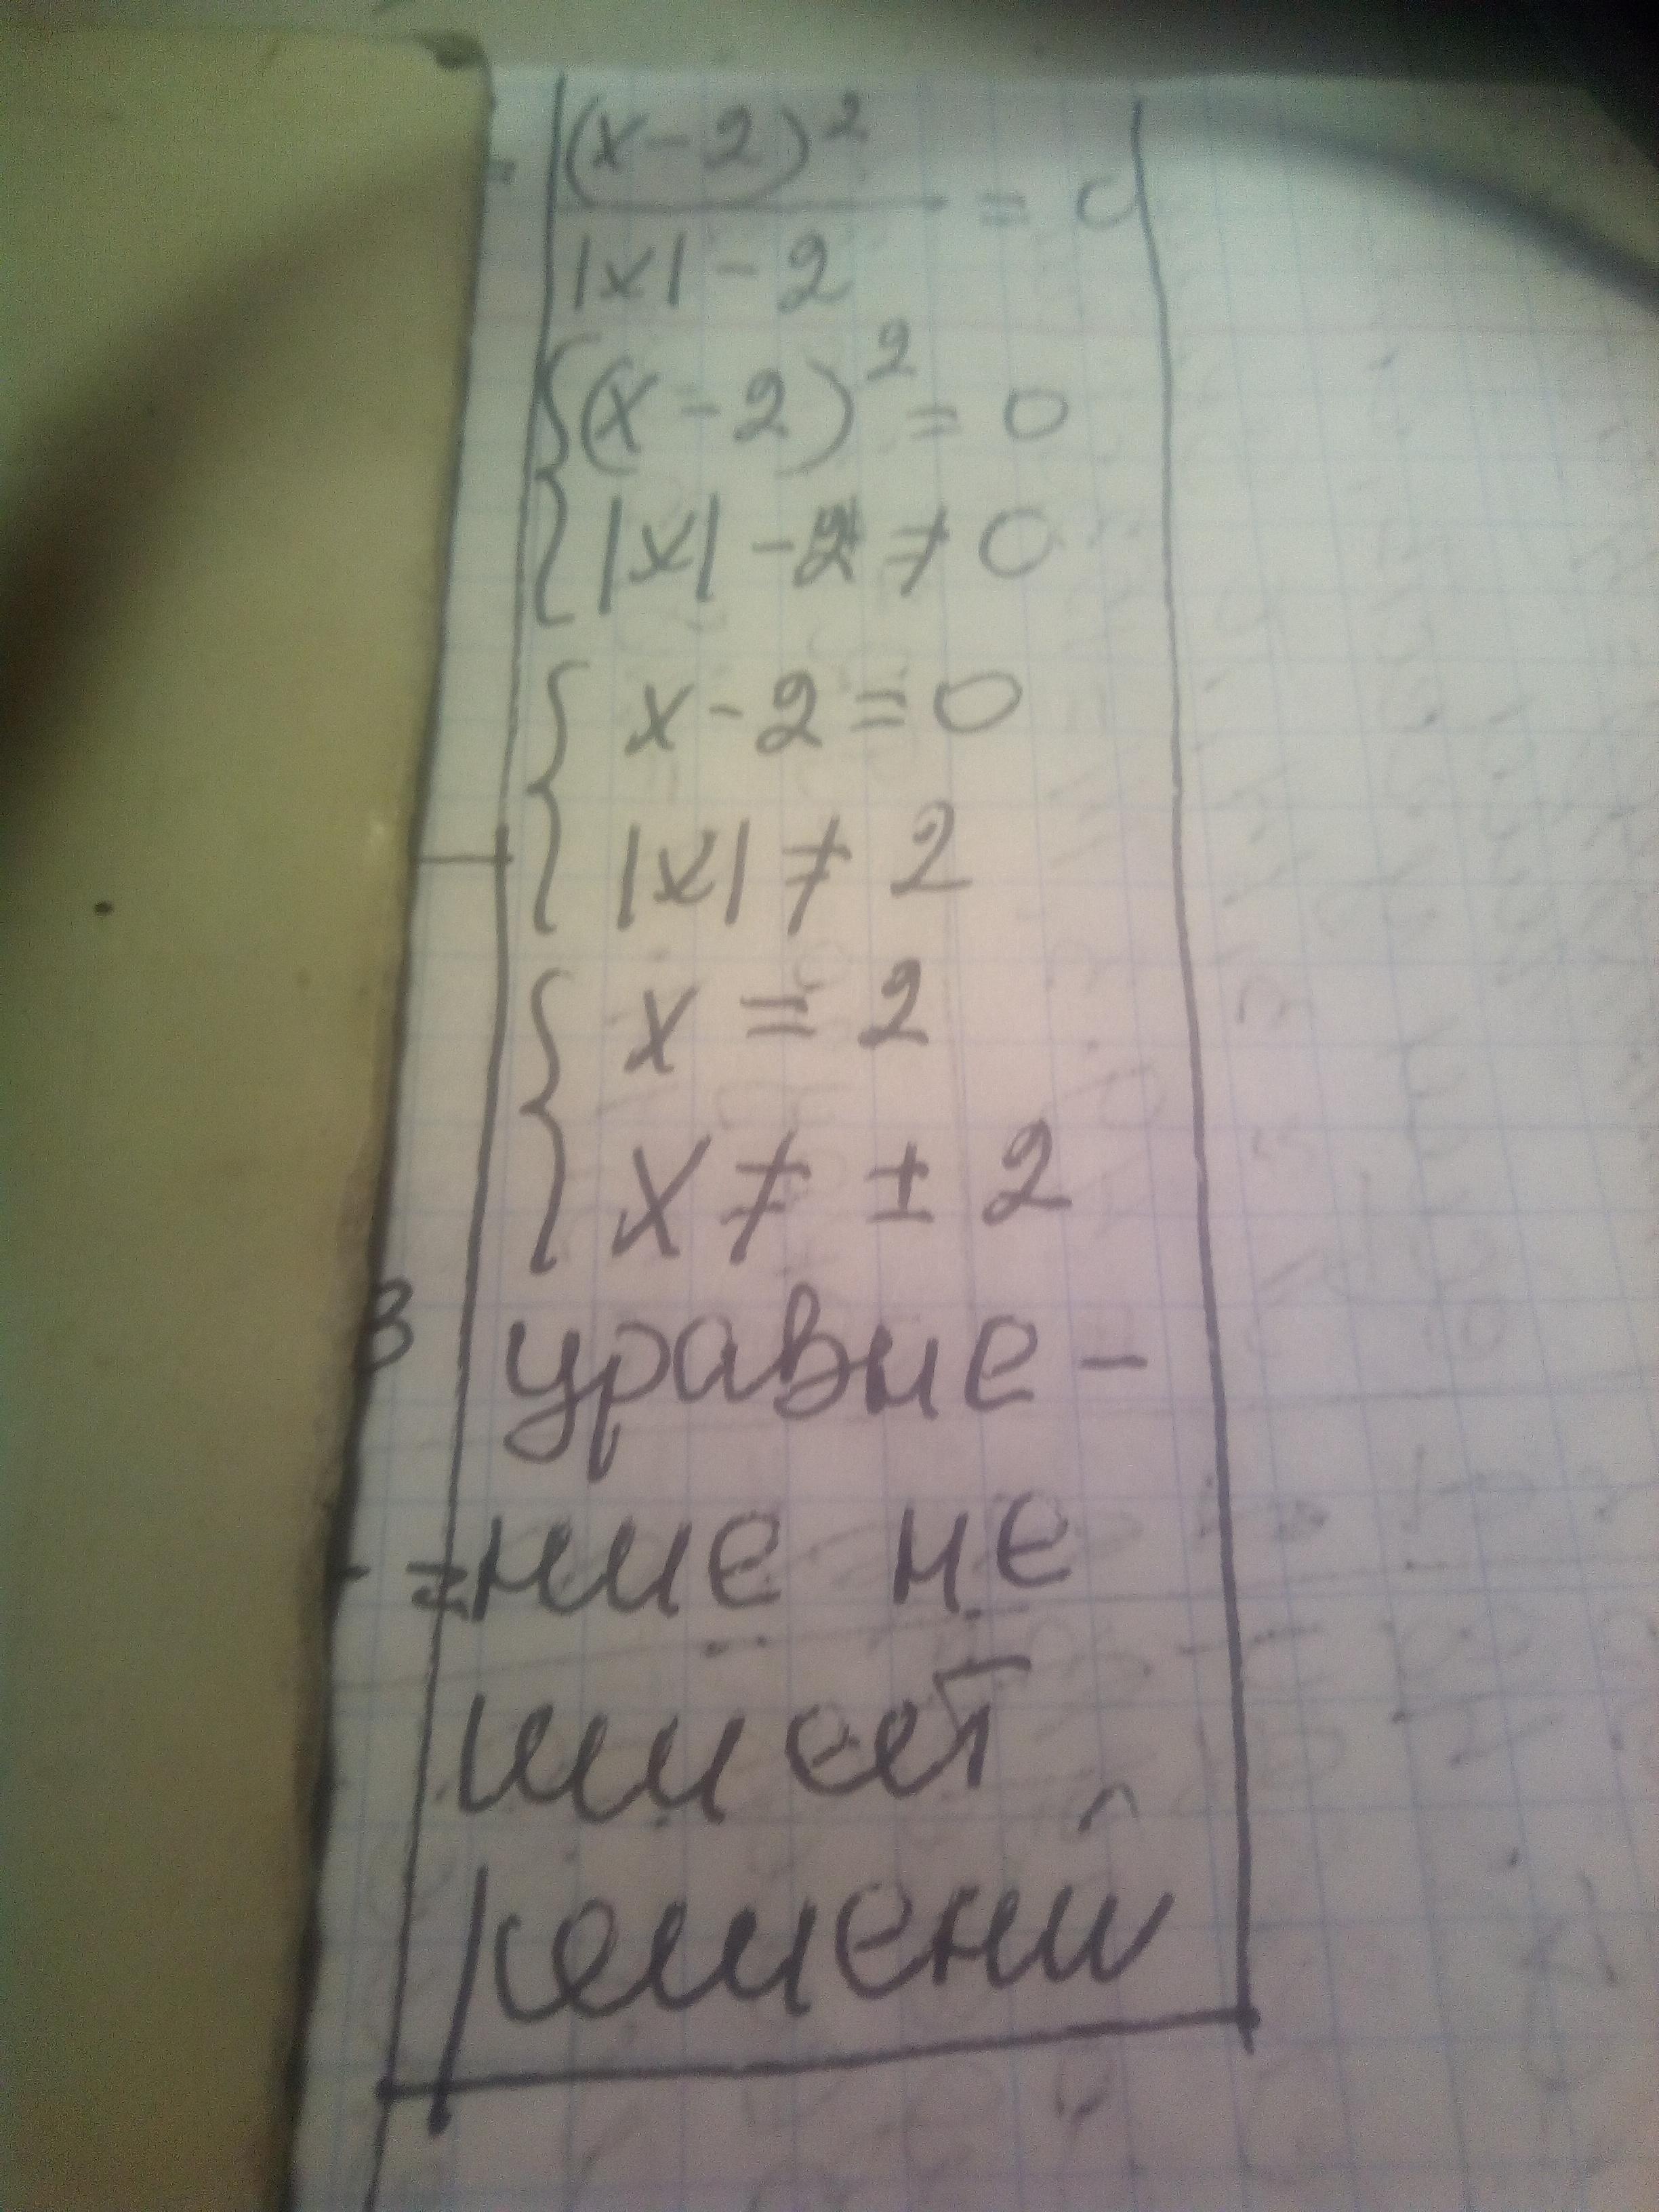 (x-2)²
/|x|-2 = 0
{(x-2)² = 0
{|x| - 2 ≠ 0
{x - 2 = 0
{|x| ≠ 2
{x = 2
{x ≠ ± 2
уравне-
ние не
имеет
решений